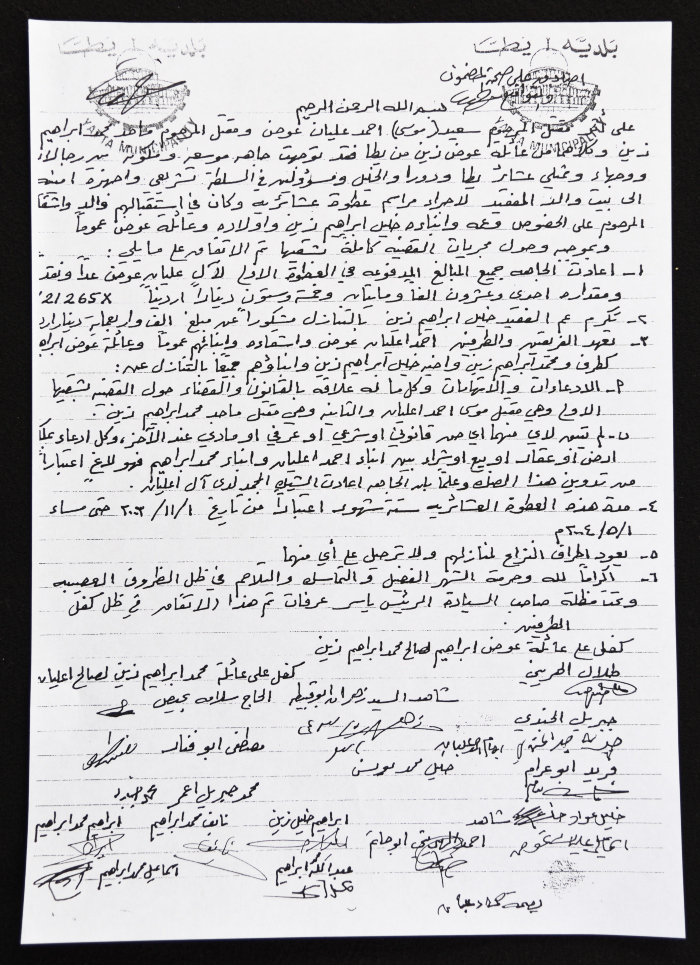 بلدية يطا
بلدية يطا
YATTA MUNICIPALITY
YATTA MUNICIPALITY
اصادق على صحة المضمون
بسم الله الرحمن الرحيم
على أثر مقتل المرحوم سعيد (موسى) احمد عليان عوض ومقتل المرحوم ماجد محمد ابراهيم
زين وكلاهما من عائلة عوض زين من يطا فقد توجهت جاهه موسعه ومكونه من رجالات
ووجهاء وممثلي عشائر يطا ودورا والخليل ومسؤولين في السلطة تشريعي واجهزة امنيه
الى بيت والد الفقيد لاجراء مراسم عطوة عشائريه وكان في استقبالهم والد واشقاء
المرحوم على الخصوص وعمه وابناءه خليل ابراهيم زين واولاده وعائلة عوض عموماً
وبموجبه وحول مجريات القضيه كاملة بشقيها تم الاتفاق على ما يلي :
١- اعادت الجاهه جميع المبالغ المدفوعه في العطوة الاولى لآل عليان عوض عداً ونقداً
ومقداره احدى وعشرون الفاً ومايتان وخمسة وستون ديناراً اردنياً 21265X
٢- تكرم عم الفقيد خليل ابراهيم زين بالتنازل مشكوراً عن مبلغ الف واربعماية دينار
٣- تعهد الفريقين والطرفين احمد اعليان عوض واشقاءه وابنائهم عموماً وعائلة عوض ابراهيم
كطرف ومحمد ابراهيم زين واخيه خليل ابراهيم زين وابناؤهم جميعاً بالتنازل عن :
أ- الادعاءات والاتهامات وكل ما له علاقه بالقانون والقضاء حول القضيه بشقيها
الاولى وهي مقتل موسى احمد اعليان والثانيه وهي مقتل ماجد محمد ابراهيم زين .
ب- لم تبق لأي منهما اي حق قانوني او شرعي او عرفي او مادي عند الآخر ، وكل ادعاء
ارض او عقار او بيع او شراء بين ابناء احمد اعليان وابناء محمد ابراهيم فهو لاغ اعتباراً
من تدوين هذا الصك وعلماً بان الجاهه اعادت الشيك المجمد لدى آل اعليان .
٤- مدة هذه العطوة العشائريه ستة شهور اعتباراً من تاريخ ٢٠٠٣/١١/١ حتى مساء
٢٠٠٤/٥/١م
٥- يعود اطراف النزاع لمنازلهم ولا ترحل على أي منهما
٦- اكراماً لله وحرمة الشهر الفضيل والتماسك والتلاحم في ظل الظروف العصيبه
وتحت مظلة صاحب السيادة الرئيس ياسر عرفات تم هذا الاتفاق في ظل كفل
الطرفين .
كفلى على عائلة عوض ابراهيم لصالح محمد ابراهيم زين
كفل على عائلة محمد ابراهيم زين لصالح اعليان
طلال الهريني
شاهد السيد زهران ابو قبيطه
الحاج سلامه بحيص
جبريل الجندي
مصطفى ابو فنار
خليل محمد يونس
فريد ابو عرام
محمد جبريل اعمر
خليل عواد
شاهد
ابراهيم خليل زين
نايف محمد ابراهيم
ابراهيم محمد ابراهيم
عبد الله ابراهيم
اسماعيل محمد ابراهيم